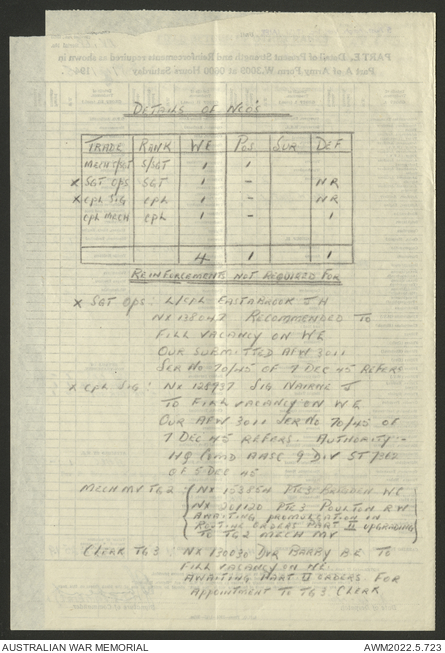 DETAILS OF NCO'S
TRADE RANK WE POS SUR DEF
MECH S/SGT S/SGT 1 1
x SGT OPS SGT 1 - NR
x CPL SIG CPL 1 - NR
CPL MECH CPL 1 - 1
4 1 1
REINFORCEMENTS NOT REQUIRED FOR
x SGT OPS: L/CPL EASTABROOK J H
NX 138042 RECOMMENDED TO
FILL VACANCY ON WE
OUR SUBMITTED AFW 3011
SER NO 70/45 OF 7 DEC 45 REFERS
x CPL SIG: NX 125937 SIG NAIRNE J
TO FILL VACANCY ON WE
OUR AFW 3011 SER NO 70/45 OF
7 DEC 45 REFERS. AUTHORITY:-
HQ COMD AASC 9 DIV ST 7362
OF 5 DEC 45
MECH MV TG2 NX 153854 PTE BRAGDEN WC
NX 201120 PTE POULTON RW
AWAITING PROMULGATION IN
ROUTINE ORDERS PART II UPGRADING
TO TG2 MECH MV
CLERK TG3 NX 130030 DVR BARRY BR TO
FILL VACANCY ON WE.
AWAITING PART II ORDERS FOR
APPOINTMENT TO TG3 CLERK
AUSTRALIAN WAR MEMORIAL AWM2022.5.723